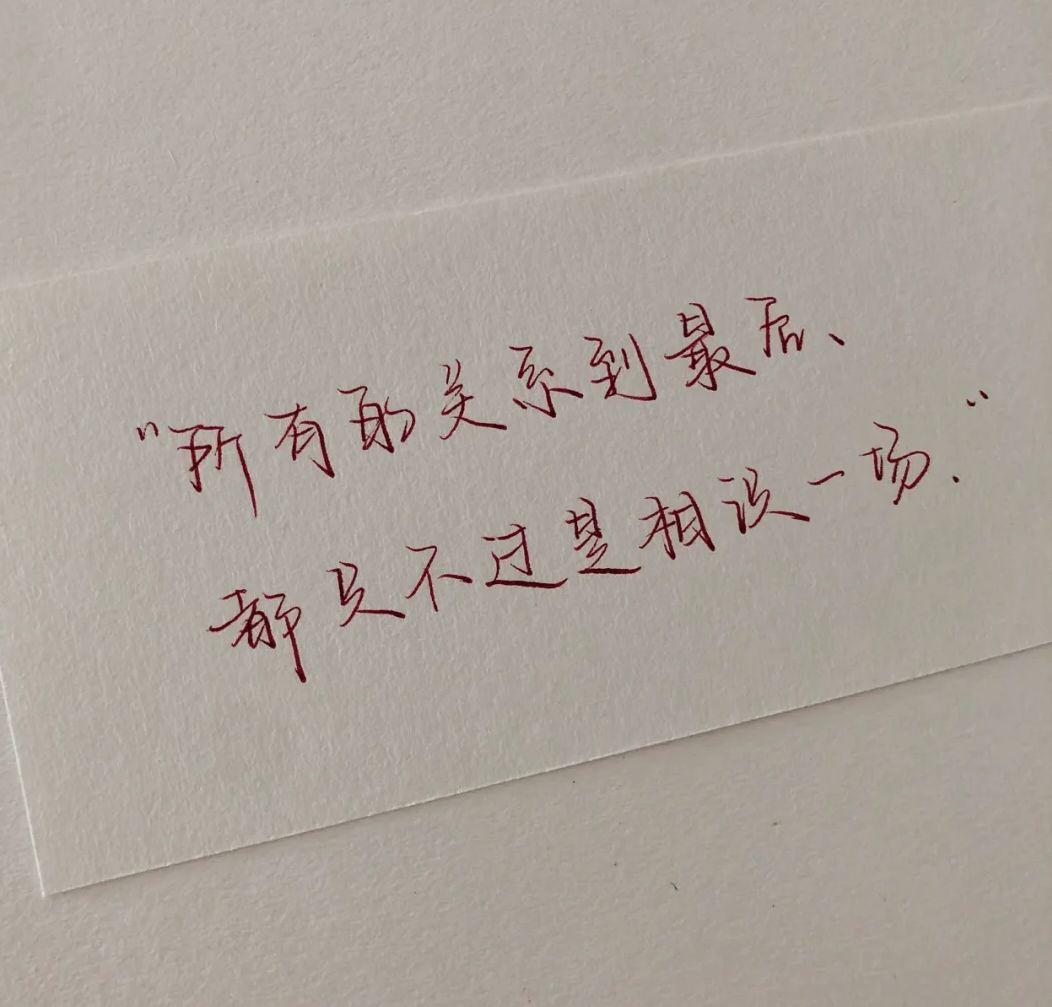 "所有的关系到最后、
都只不过是相识一场."